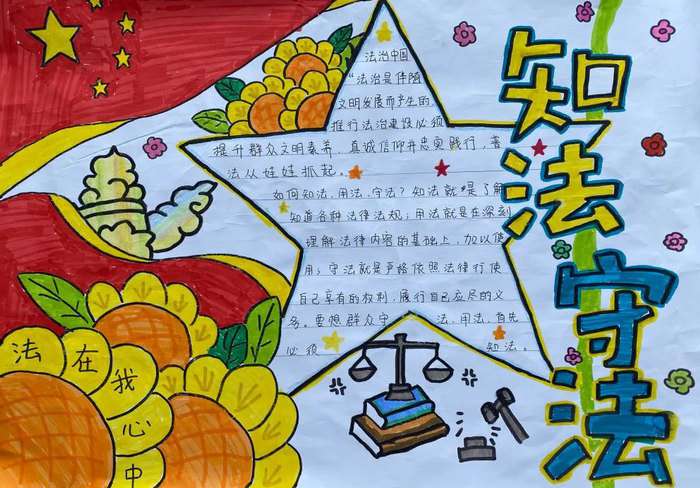 知法守法
法治中国
“法治是伴随
文明发展而产生的
推行法治建设必须
提升群众文明素养,真诚信仰并忠实践行,普
法从娃娃抓起。
如何知法,用法,守法?知法就是了解
知道各种法律法规;用法就是在深刻
理解法律内容的基础上,加以使
用;守法就是严格依照法律行使
自己享有的权利,履行自己应尽的义
务。要想群众守法,用法,首先
必须知法。
法在我心中